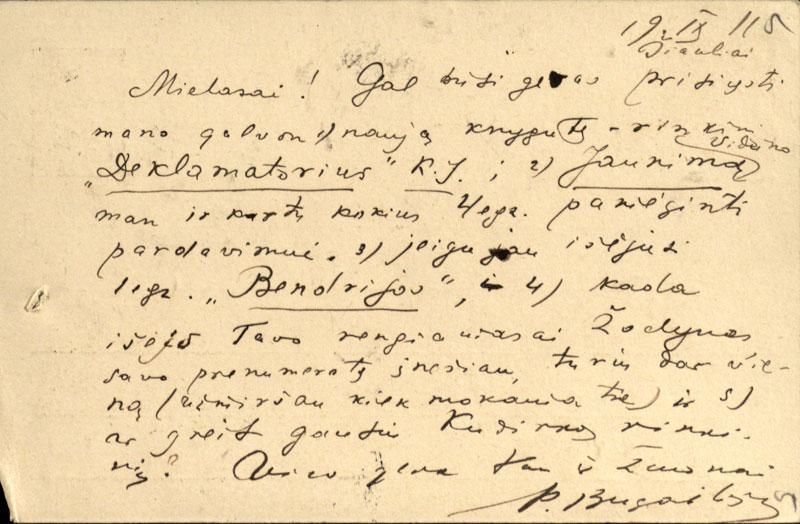 19 IX 11
Šiauliai
Mielasai! Gal būsi geras prisiųsti
mano galvon 1) naują knygutę - rinkinį
"Deklamatorius" K.J.; 2) Jaunimą
man ir kartu kokius 4 egz. pamėginti
pardavimui. 3) jeigu jau išėjusi
1 egz. "Bendrijos", 4) kada
išeis Tavo rengiamasai Žodynas
savo prenumeratą įnešiau, turiu dar vie-
ną (užmiršau kiek mokama tie) ir 5)
ar greit gausiu Kudirkos rinki-
nį? Viso gera Tau ir žmonai
P. Bugailiškis